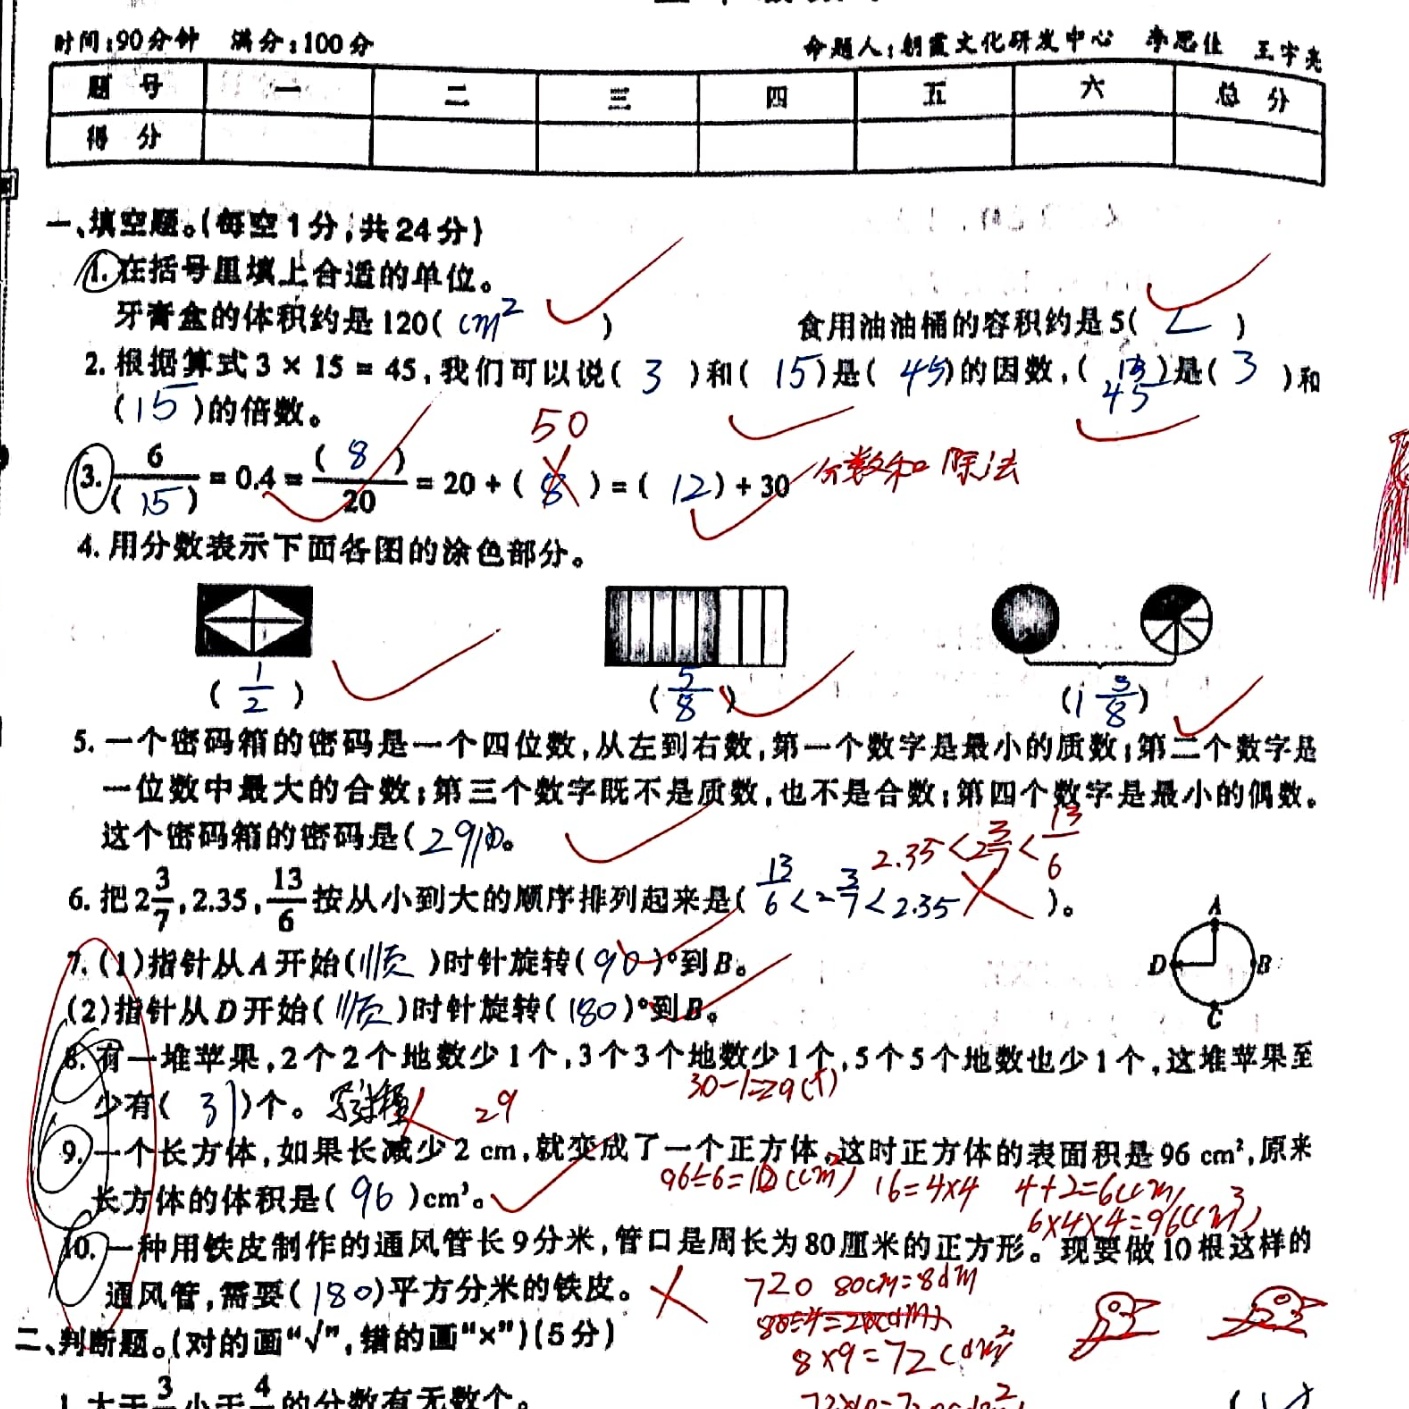 时间:90分钟 满分:100分 命题人:朝霞文化研发中心 李思佳 王宇亮
题号 一 二 三 四 五 六 总分
得分
一、填空题。(每空1分,共24分)
1.在括号里填上合适的单位。
牙膏盒的体积约是120( cm² ) 食用油油桶的容积约是5( L )
2.根据算式3×15=45,我们可以说( 3 )和( 15 )是( 45 )的因数,( 45 )是( 3 )和
( 15 )的倍数。
50
3. 6/( 15 )=0.4=( 8 )/20=20÷( 8 )=( 12 )÷30 分数和除法
4.用分数表示下面各图的涂色部分。
( 1/2 ) ( 5/8 ) ( 1 3/8 )
5.一个密码箱的密码是一个四位数,从左到右数,第一个数字是最小的质数;第二个数字是
一位数中最大的合数;第三个数字既不是质数,也不是合数;第四个数字是最小的偶数。
这个密码箱的密码是( 2910 )。
2.35<2 3/7<13/6
6.把2 3/7,2.35,13/6按从小到大的顺序排列起来是( 13/6<2 3/7<2.35 )。
A
7.(1)指针从A开始( 顺 )时针旋转( 90 )°到B。
D B
(2)指针从D开始( 顺 )时针旋转( 180 )°到B。
C
8.有一堆苹果,2个2个地数少1个,3个3个地数少1个,5个5个地数也少1个,这堆苹果至
30-1=29(个)
少有( 31 )个。 29
9.一个长方体,如果长减少2 cm,就变成了一个正方体,这时正方体的表面积是96 cm²,原来
96÷6=16(cm²) 16=4×4 4+2=6(cm)
长方体的体积是( 96 )cm³。
6×4×4=96(cm³)
10.一种用铁皮制作的通风管长9分米,管口是周长为80厘米的正方形。现要做10根这样的
通风管,需要( 180 )平方分米的铁皮。 720 80cm=8dm
8×9=72(dm²)
二、判断题。(对的画“√”,错的画“×”)(5分)
1.大于3 小于4 的分数有无数个。